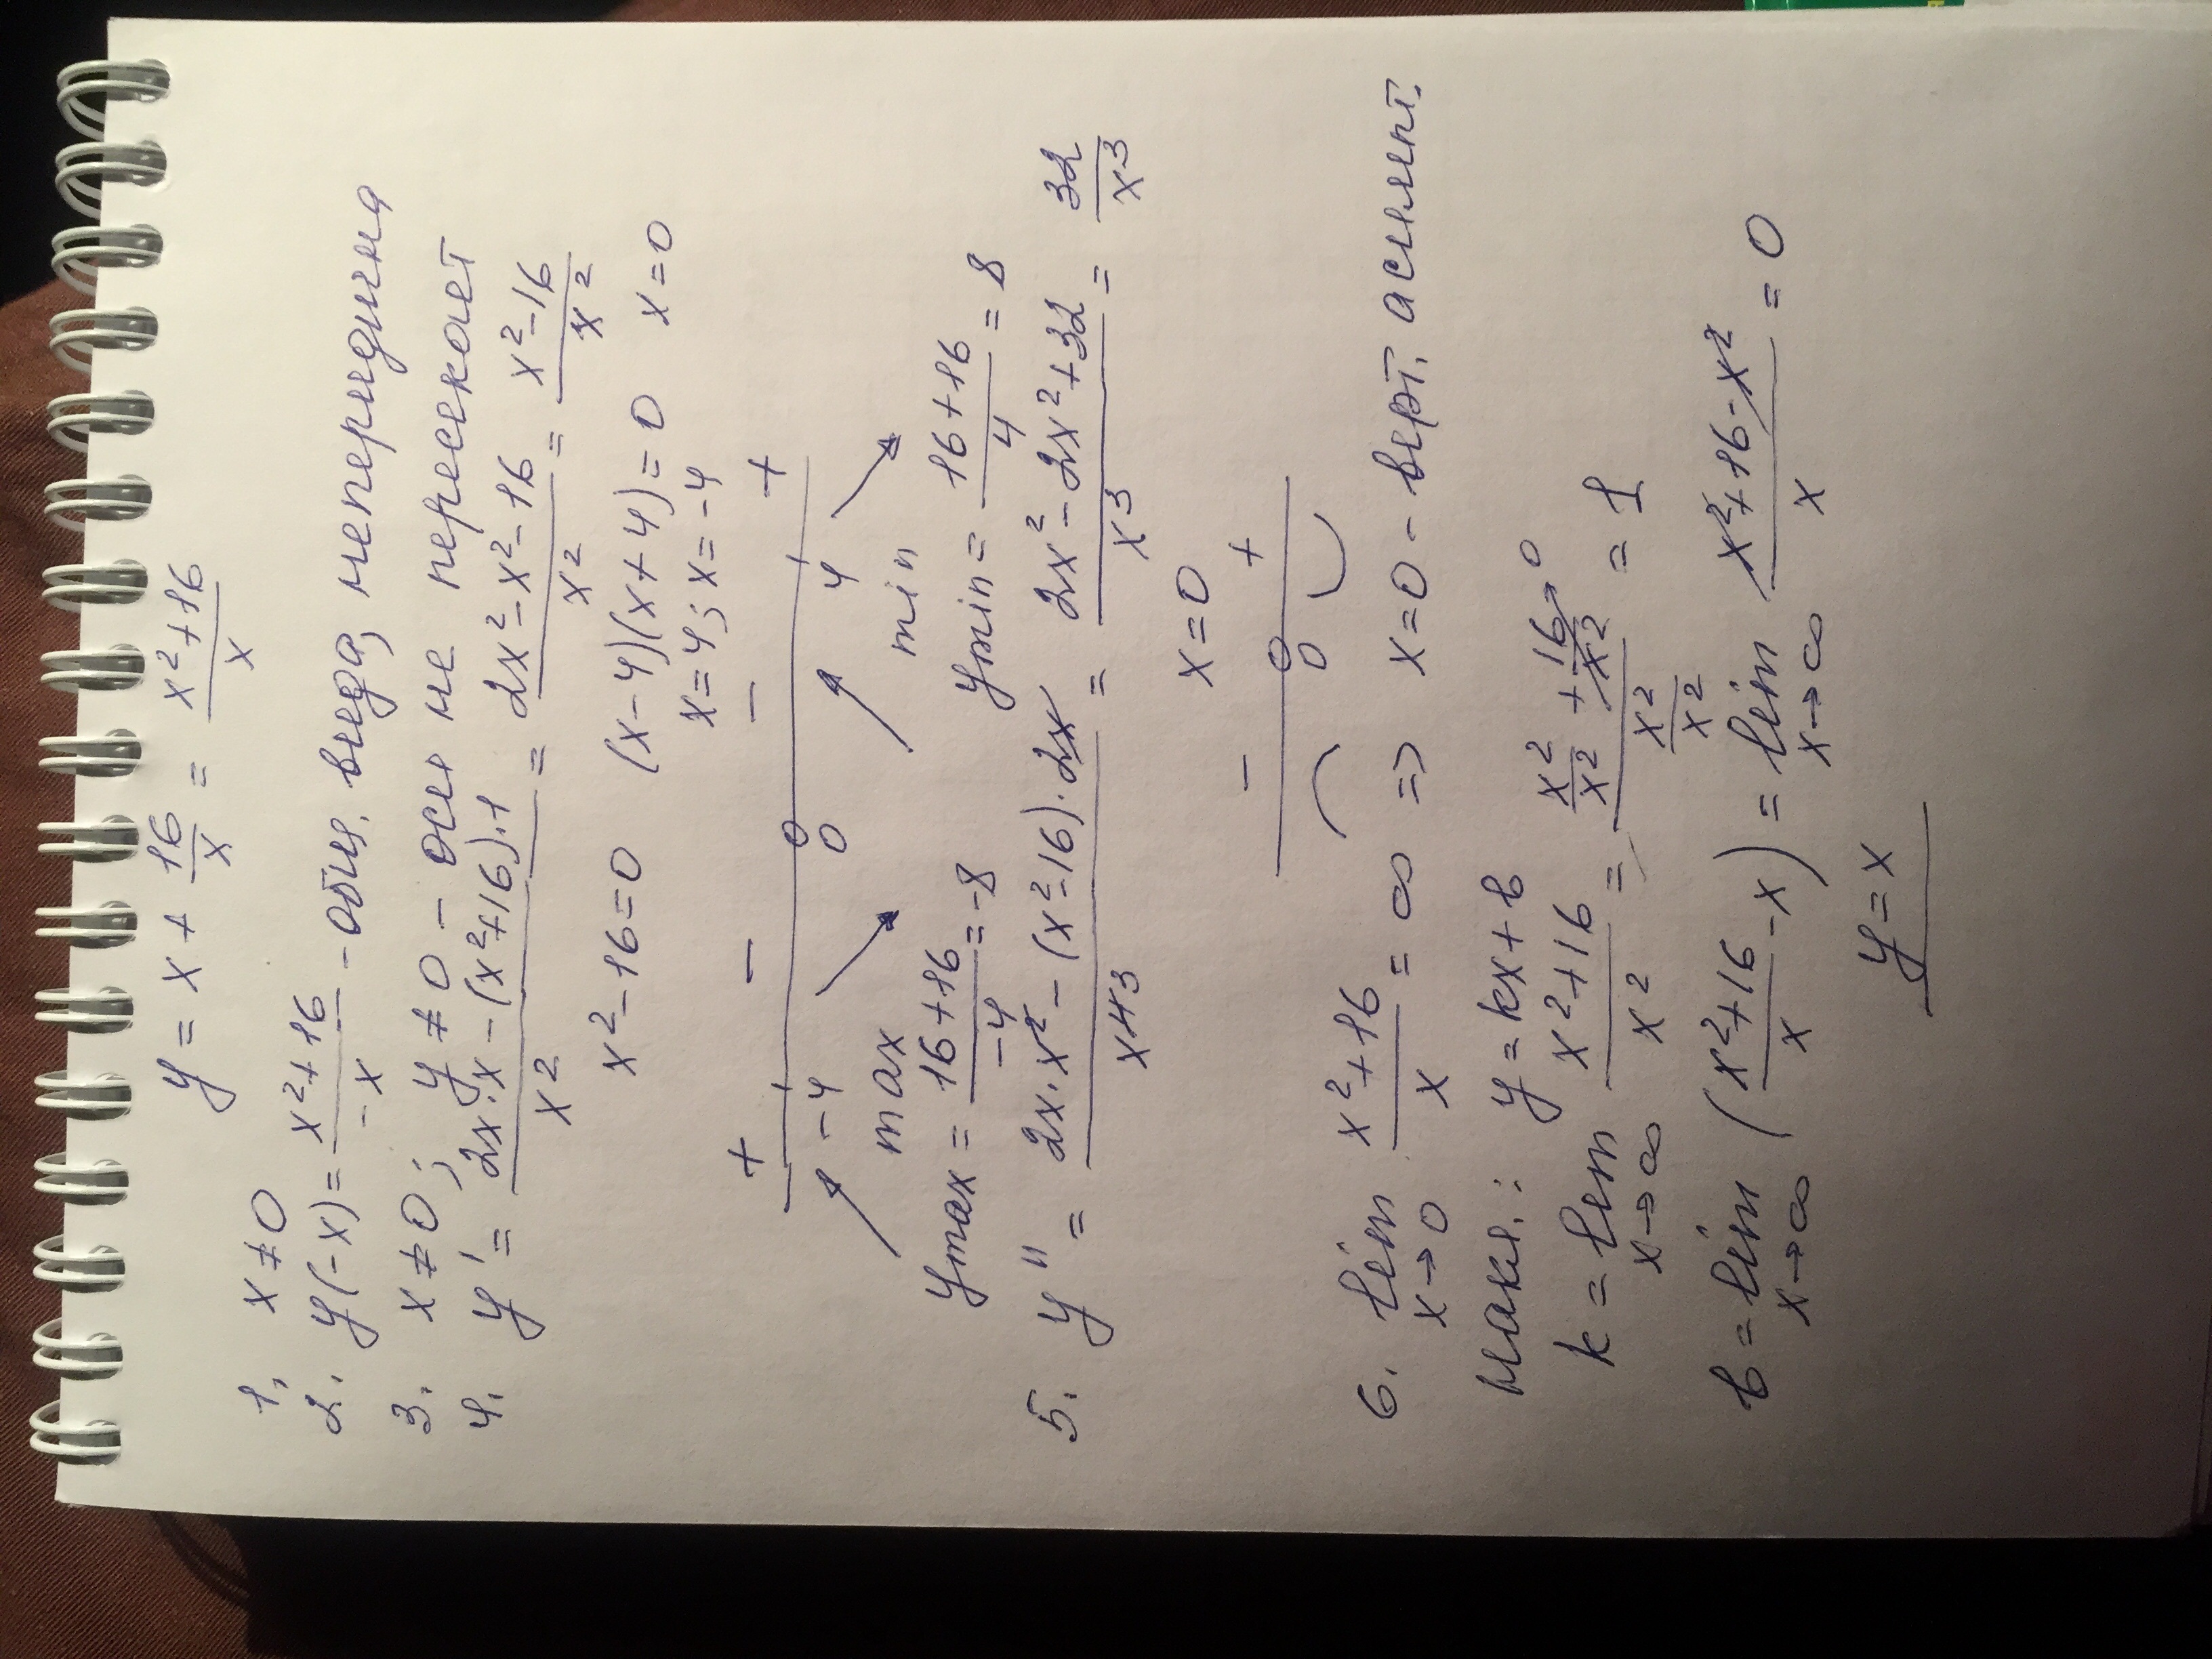 y = x + 16/x = (x² + 16)/x
1. x ≠ 0
2. y(-x) = (x² + 16)/(-x) - общ. вида, непериодична
3. x ≠ 0; y ≠ 0 - оси не пересекает
4. y' = (2x·x - (x² + 16)·1)/x² = (2x² - x² - 16)/x² = (x² - 16)/x²
x² - 16 = 0 (x - 4)(x + 4) = 0 x = 0
x = 4; x = -4
+ - - +
-4 0 4
max min
ymax = (16 + 16)/(-4) = -8 ymin = (16 + 16)/4 = 8
5. y'' = (2x·x² - (x² - 16)·2x)/x⁴³ = (2x² - 2x² + 32)/x³ = 32/x³
x = 0
- +
0
6. lim x→0 (x² + 16)/x = ∞ => x = 0 - верт. асимпт.
накл.: y = kx + b
k = lim x→∞ (x² + 16)/x² = (x²/x² + 16/x²→0)/(x²/x²) = 1
b = lim x→∞ ((x² + 16)/x - x) = lim x→∞ (x² + 16 - x²)/x = 0
y = x